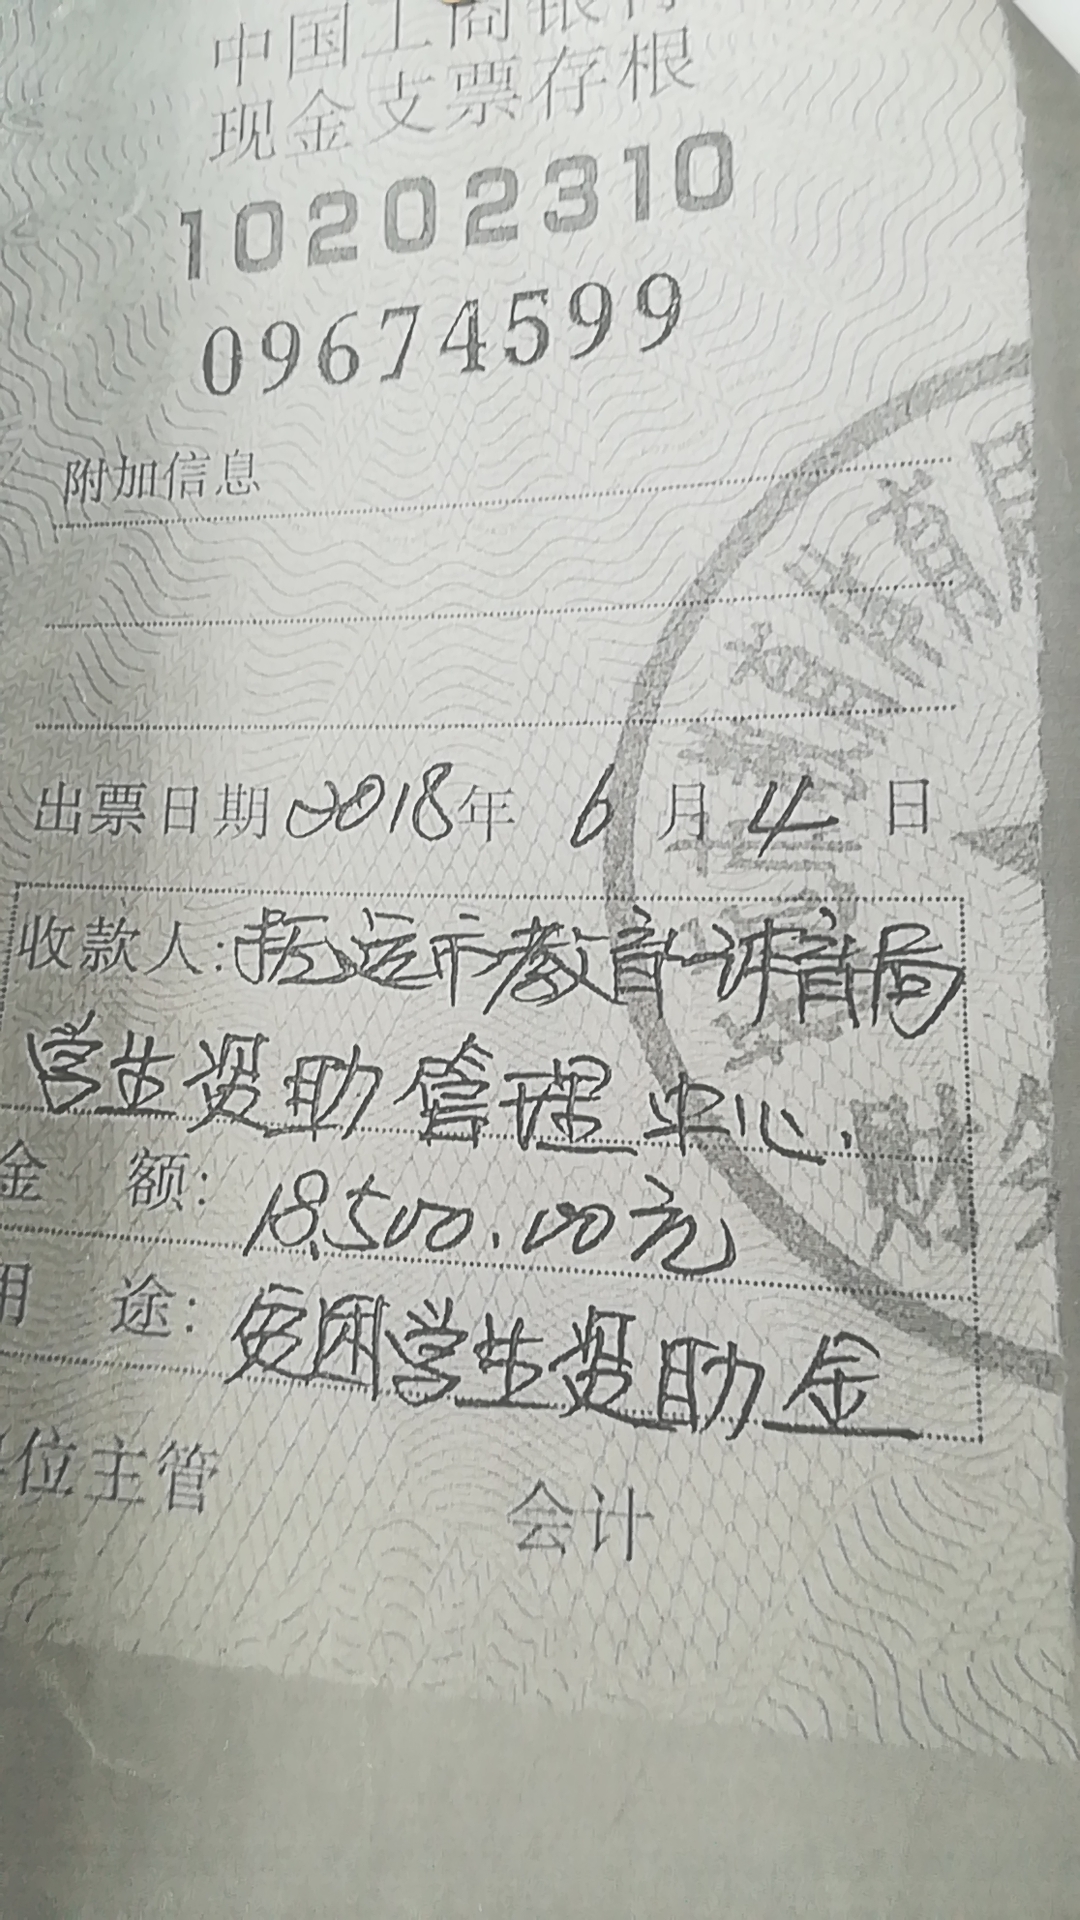 中国工商银行
现金支票存根
10202310
09674599
附加信息
出票日期 2018年 6 月 4 日
收款人:抚远市教育体育局
学生资助管理中心.
金 额: 18,500.00元
用 途: 贫困学生资助金
单位主管 会计
财务